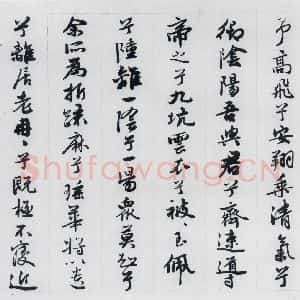 予高飛兮安翔乘清氣兮
御陰陽吾與君兮齊速導
帝之兮九坑雲衣兮被〻玉佩
兮陸離一陰兮一陽衆莫知兮
余所爲折疎麻兮瑤華將以遺
兮離居老冉〻兮既極不寖近
Shufawang.CN